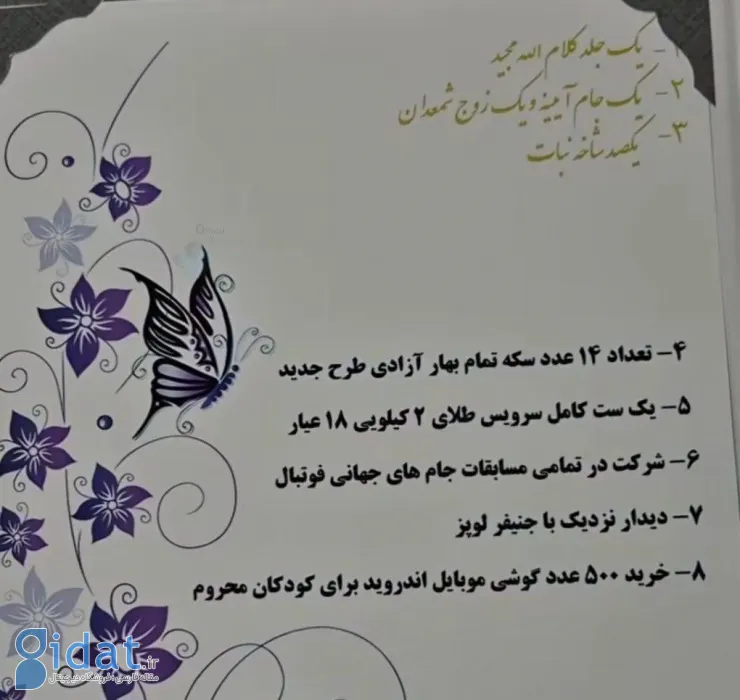 ۱- یک جلد کلام الله مجید
۲- یک جام آیینه و یک زوج شمعدان
۳- یکصد شاخه نبات
۴- تعداد ۱۴ عدد سکه تمام بهار آزادی طرح جدید
۵- یک ست کامل سرویس طلای ۲ کیلویی ۱۸ عیار
۶- شرکت در تمامی مسابقات جام های جهانی فوتبال
۷- دیدار نزدیک با جنیفر لوپز
۸- خرید ۵۰۰ عدد گوشی موبایل اندروید برای کودکان محروم
gidat.ir
مقاله فارسی؛ فروشگاه دیجیتال